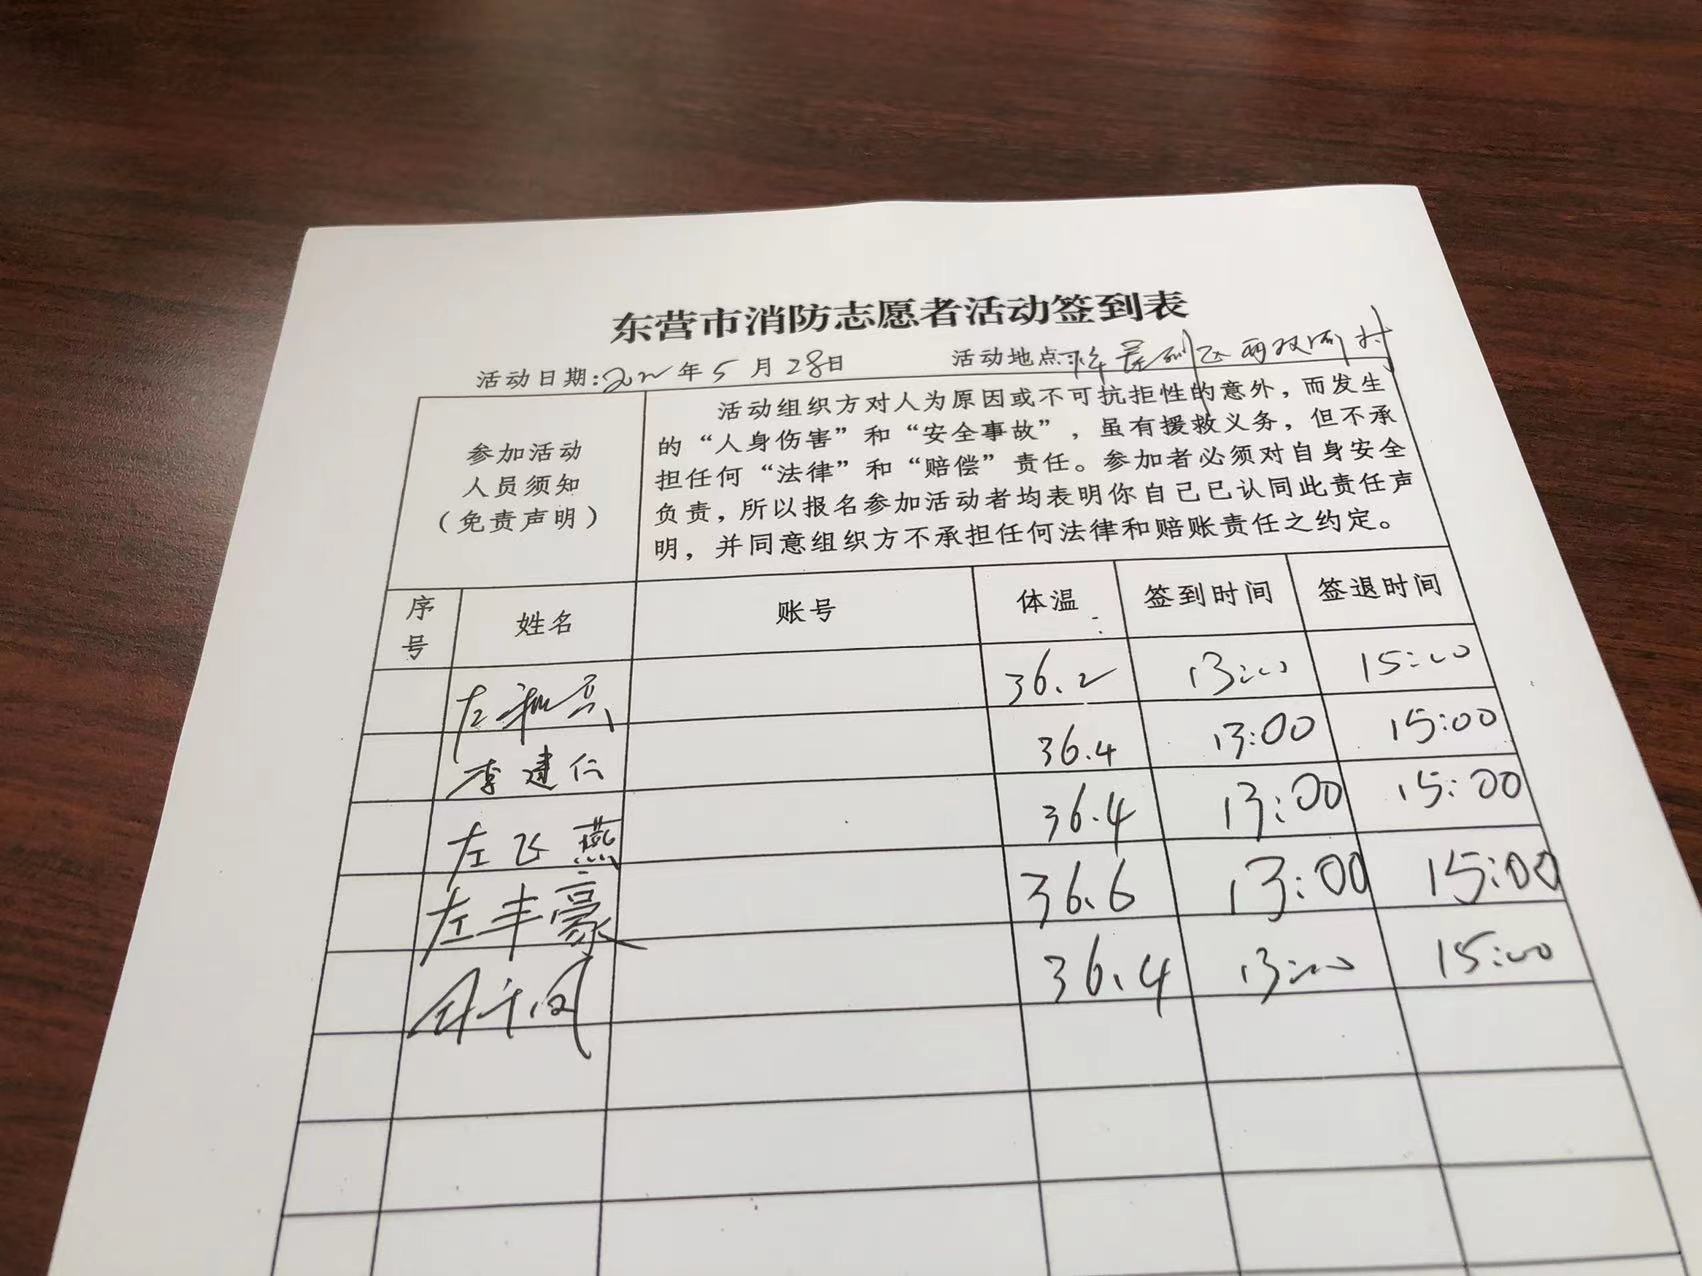 东营市消防志愿者活动签到表
活动日期:2022年5月28日 活动地点
参加活动
人员须知
（免责声明）
活动组织方对人为原因或不可抗拒性的意外，而发生
的“人身伤害”和“安全事故”，虽有援救义务，但不承
担任何“法律”和“赔偿”责任。参加者必须对自身安全
负责，所以报名参加活动者均表明你自己已认同此责任声
明，并同意组织方不承担任何法律和赔账责任之约定。
序号 姓名 账号 体温 签到时间 签退时间
左 36.2 13:00 15:00
李建仁 36.4 13:00 15:00
左飞燕 36.4 13:00 15:00
左丰豪 36.6 13:00 15:00
36.4 13:00 15:00